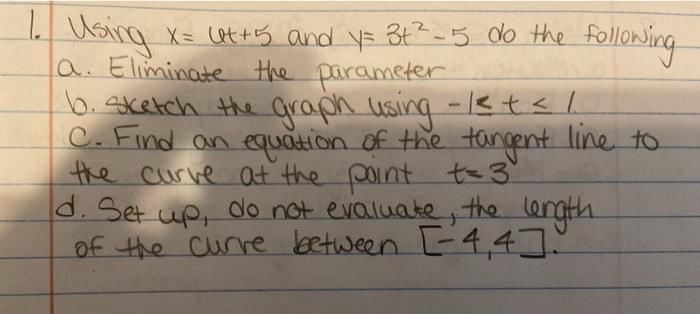 1. Using x= 6t+5 and y= 3t²-5 do the following
a. Eliminate the parameter
b. Sketch the graph using -1≤ t ≤ 1.
C. Find an equation of the tangent line to
the curve at the point t=3
d. Set up, do not evaluate, the length
of the curve between [-4,4].